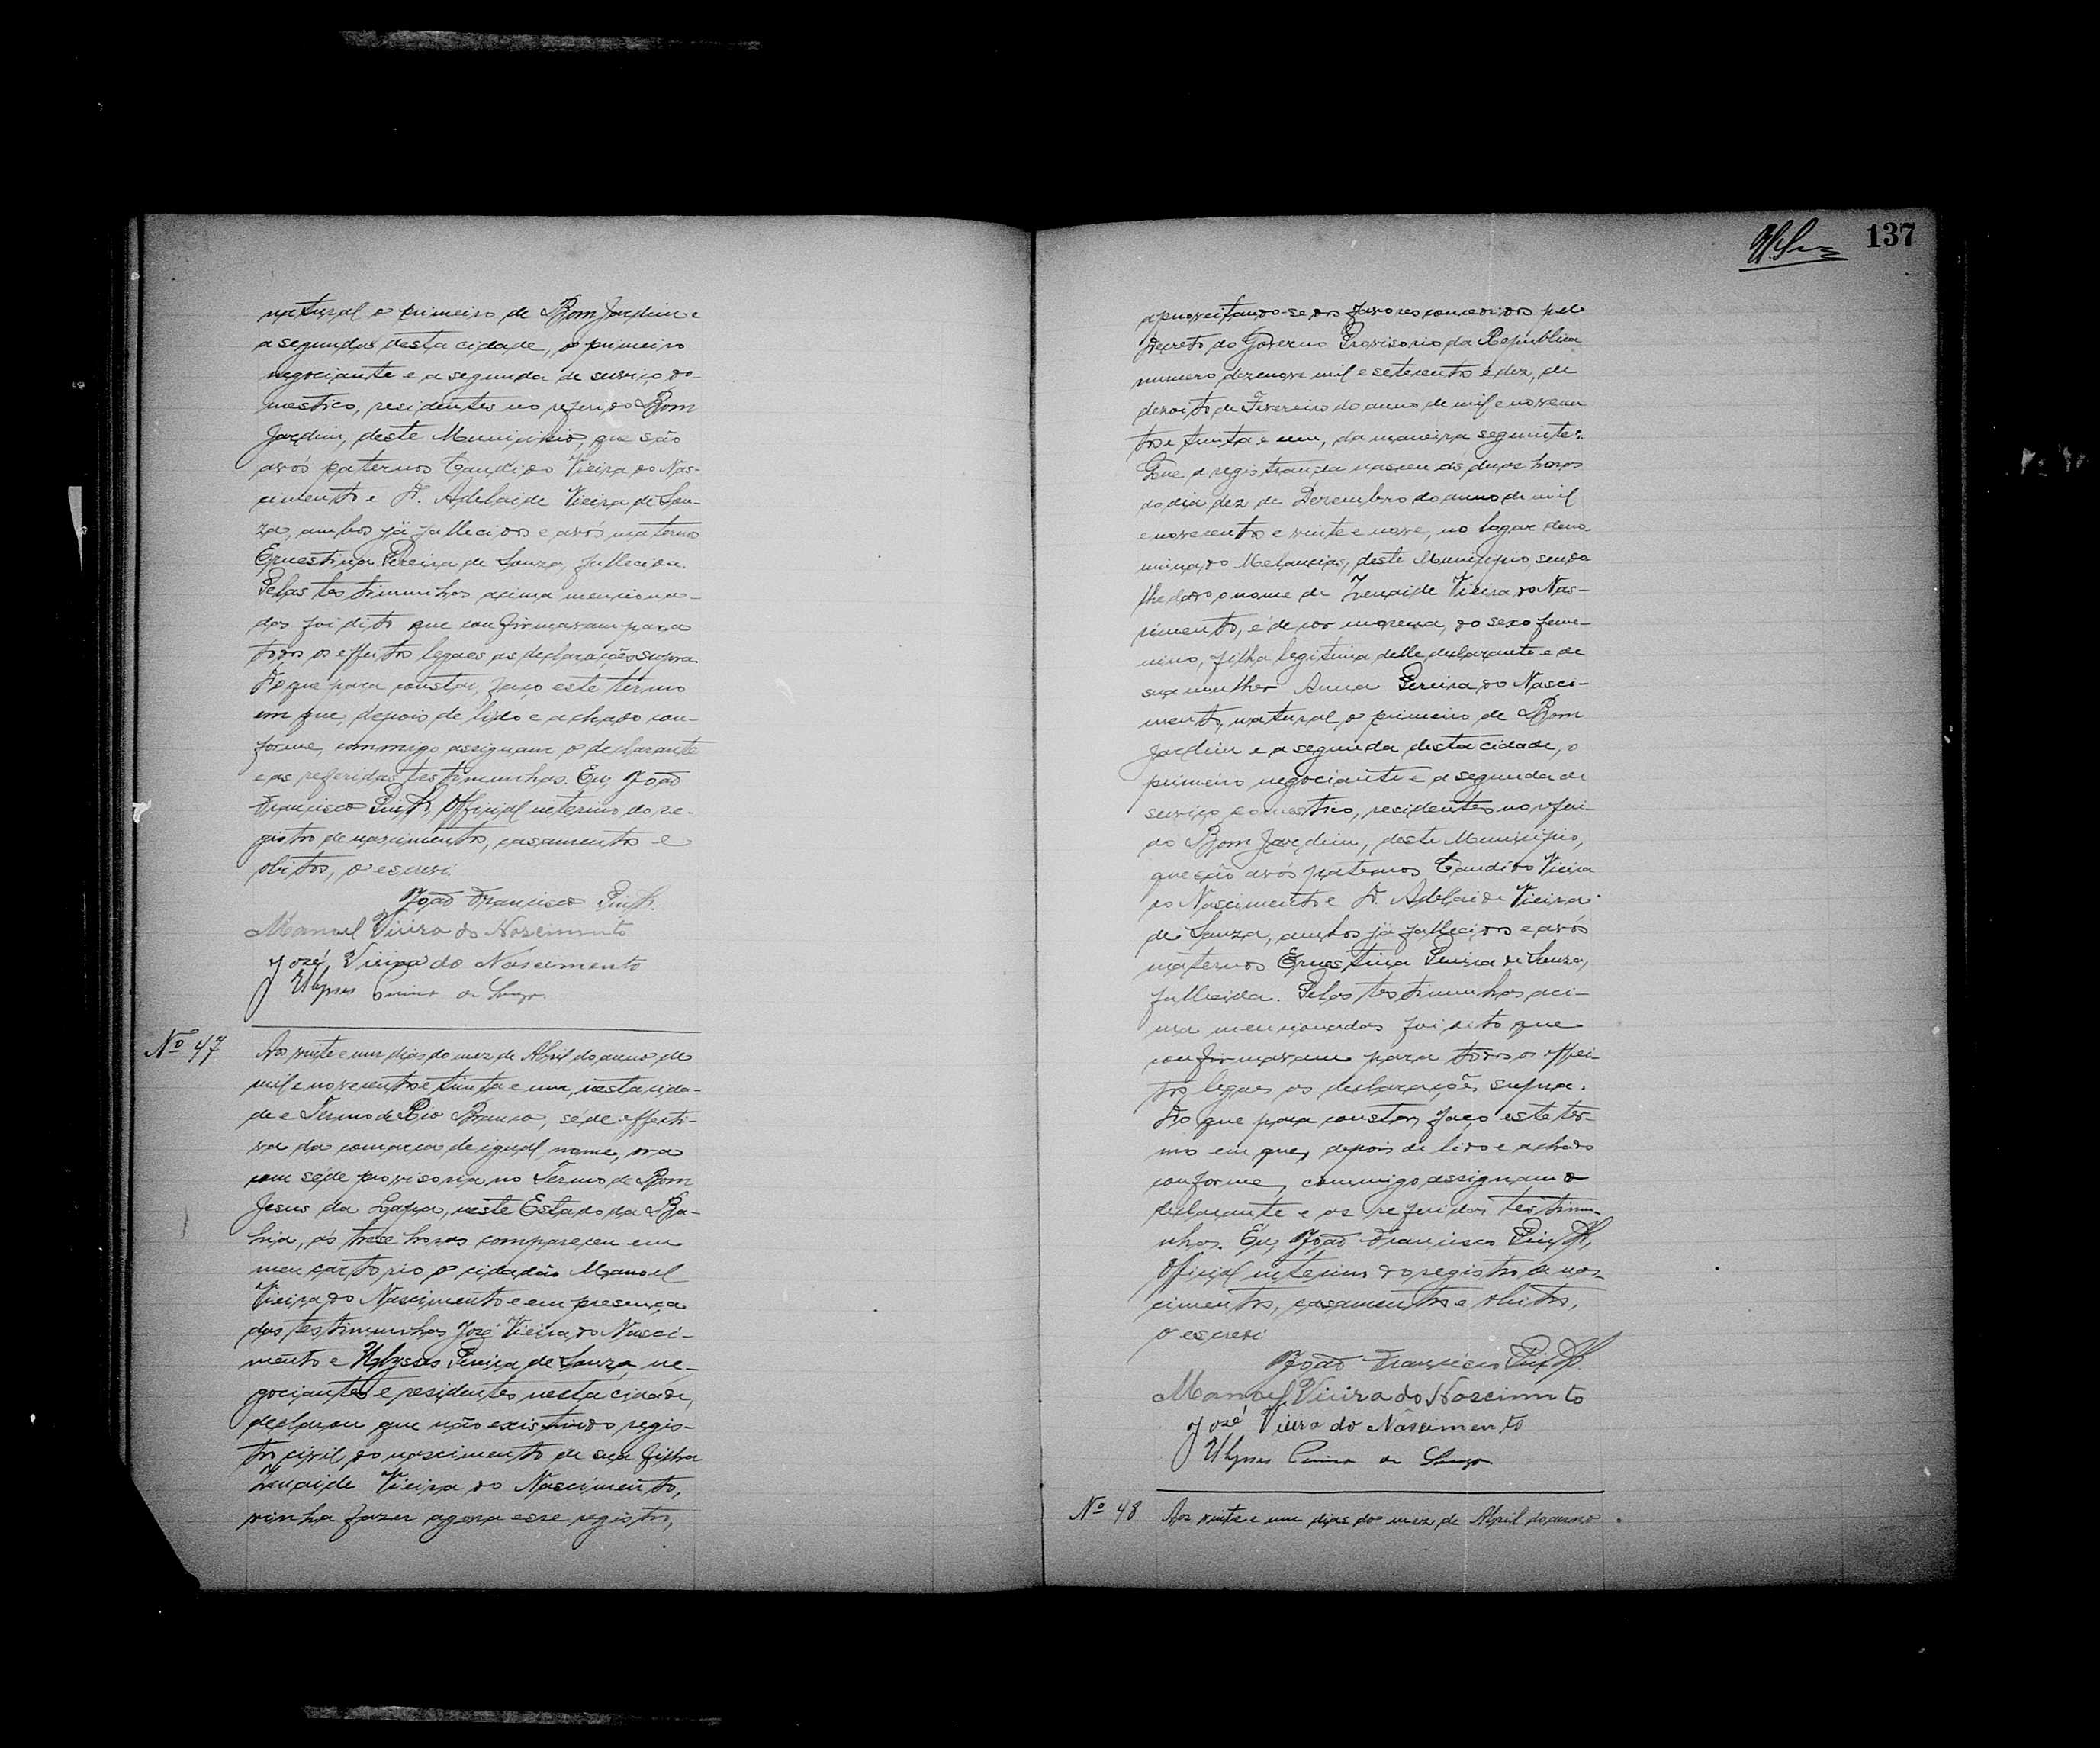 natural o primeiro de Bom Jardim e
a segunda desta cidade, o primeiro
negociante e a segunda de serviço do-
mestico, residentes no referido Bom
Jardim, deste Municipio, que são
avós paternos Candido Vieira do Nas-
cimento e D. Adelaide Vieira de Sou-
za, ambos já fallecidos e avós materno
Ernestina Pereira de Souza, fallecida.
Pelas testimunhas acima menciona-
das foi dito que confirmavam para
todos os effeitos legaes as declarações supra.
Do que para constar, faço este termo
em que, depois de lido e achado con-
forme, commigo assignam o declarante
e as referidas testimunhas. Eu, João
Francisco Official interino do re-
gistro de nascimentos, casamentos e
obitos, o escrevi.
João Francisco
Manoel Vieira do Nascimento
José Vieira do Nascimento
Ulysses Pereira de Souza
Nº 47
Aos vinte e um dias do mez de Abril do anno de
mil e novecentos e trinta e um, nesta cida-
de e Termo de Rio Branco, séde effecti-
va da comarca de igual nome, ora
com séde provisoria no Termo de Bom
Jesus da Lapa, neste Estado da Ba-
hia, ás treze horas compareceu em
meu cartorio o cidadão Manoel
Vieira do Nascimento e em presença
das testimunhas José Vieira do Nasci-
mento e Ulysses Pereira de Souza, ne-
gociantes e residentes nesta cidade,
declarou que não existindo regis-
tro civil do nascimento de sua filha
Zenaide Vieira do Nascimento,
vinha fazer agora esse registro,
137
aproveitando-se dos favores concedidos pelo
Decreto do Governo Provisorio da Republica
numero dezenove mil e setecentos e dez, de
dezoito de Fevereiro do anno de mil e novecen
tos e trinta e um, da maneira seguinte:
Que a registranda nasceu ás duas horas
do dia dez de Dezembro do anno de mil
e novecentos e vinte e nove, no logar deno-
minado Melancias, deste Municipio, sendo
lhe dado o nome de Zenaide Vieira do Nas-
cimento, é de cor morena, do sexo feme-
nino, filha legitima delle declarante e de
sua mulher Anna Pereira do Nasci-
mento, natural o primeiro de Bom
Jardim e a segunda desta cidade, o
primeiro negociante e a segunda de
serviço domestico, residentes no referi-
do Bom Jardim, deste Municipio,
que são avós paternos Candido Vieira
do Nascimento e D. Adelaide Vieira
de Souza, ambos já fallecidos e avós
maternos Ernestina Pereira de Souza,
fallecida. Pelas testimunhas aci-
ma mencionadas foi dito que
confirmavam para todos os effei-
tos legaes as declarações supra.
Do que para constar, faço este ter-
mo em que, depois de lido e achado
conforme, commigo assignam o
declarante e as referidas testimu-
nhas. Eu, João Francisco
Official interino do registro de nas-
cimentos, casamentos e obitos,
o escrevi.
João Francisco
Manoel Vieira do Nascimento
José Vieira do Nascimento
Ulysses Pereira de Souza
Nº 48
Aos vinte e um dias do mez de Abril do anno